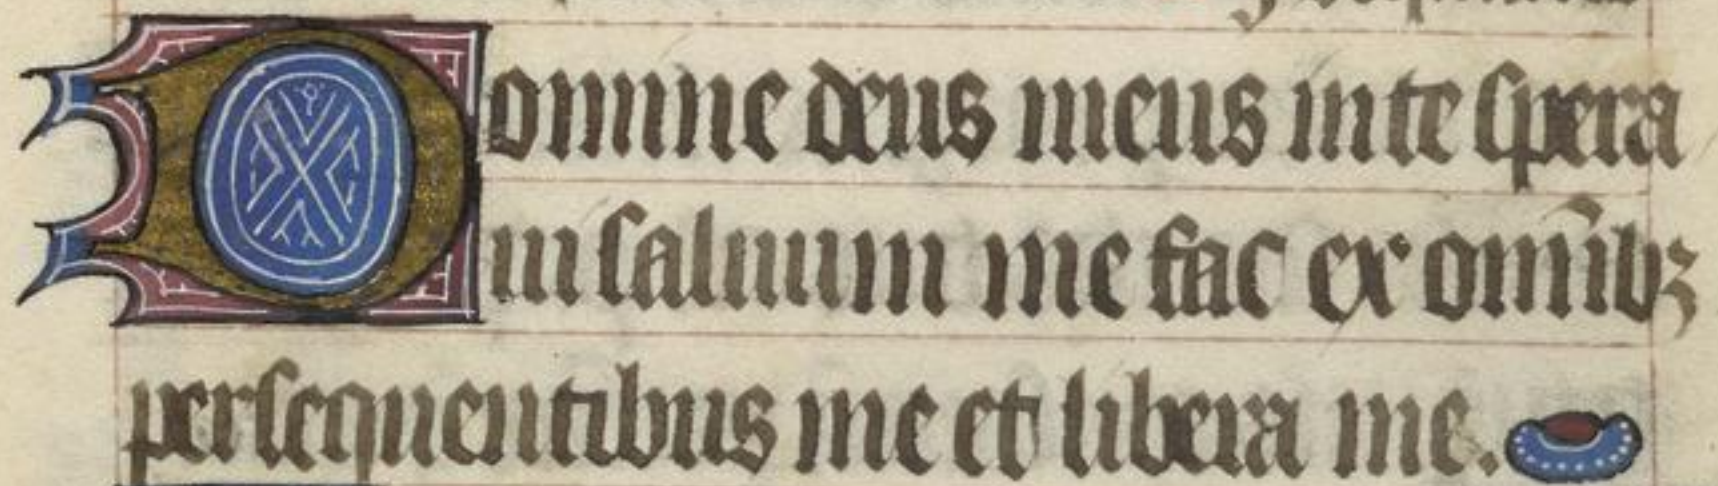 Domine deus meus in te spera
ui saluum me fac ex om̅ibꝫ
persequentibus me et libera me.